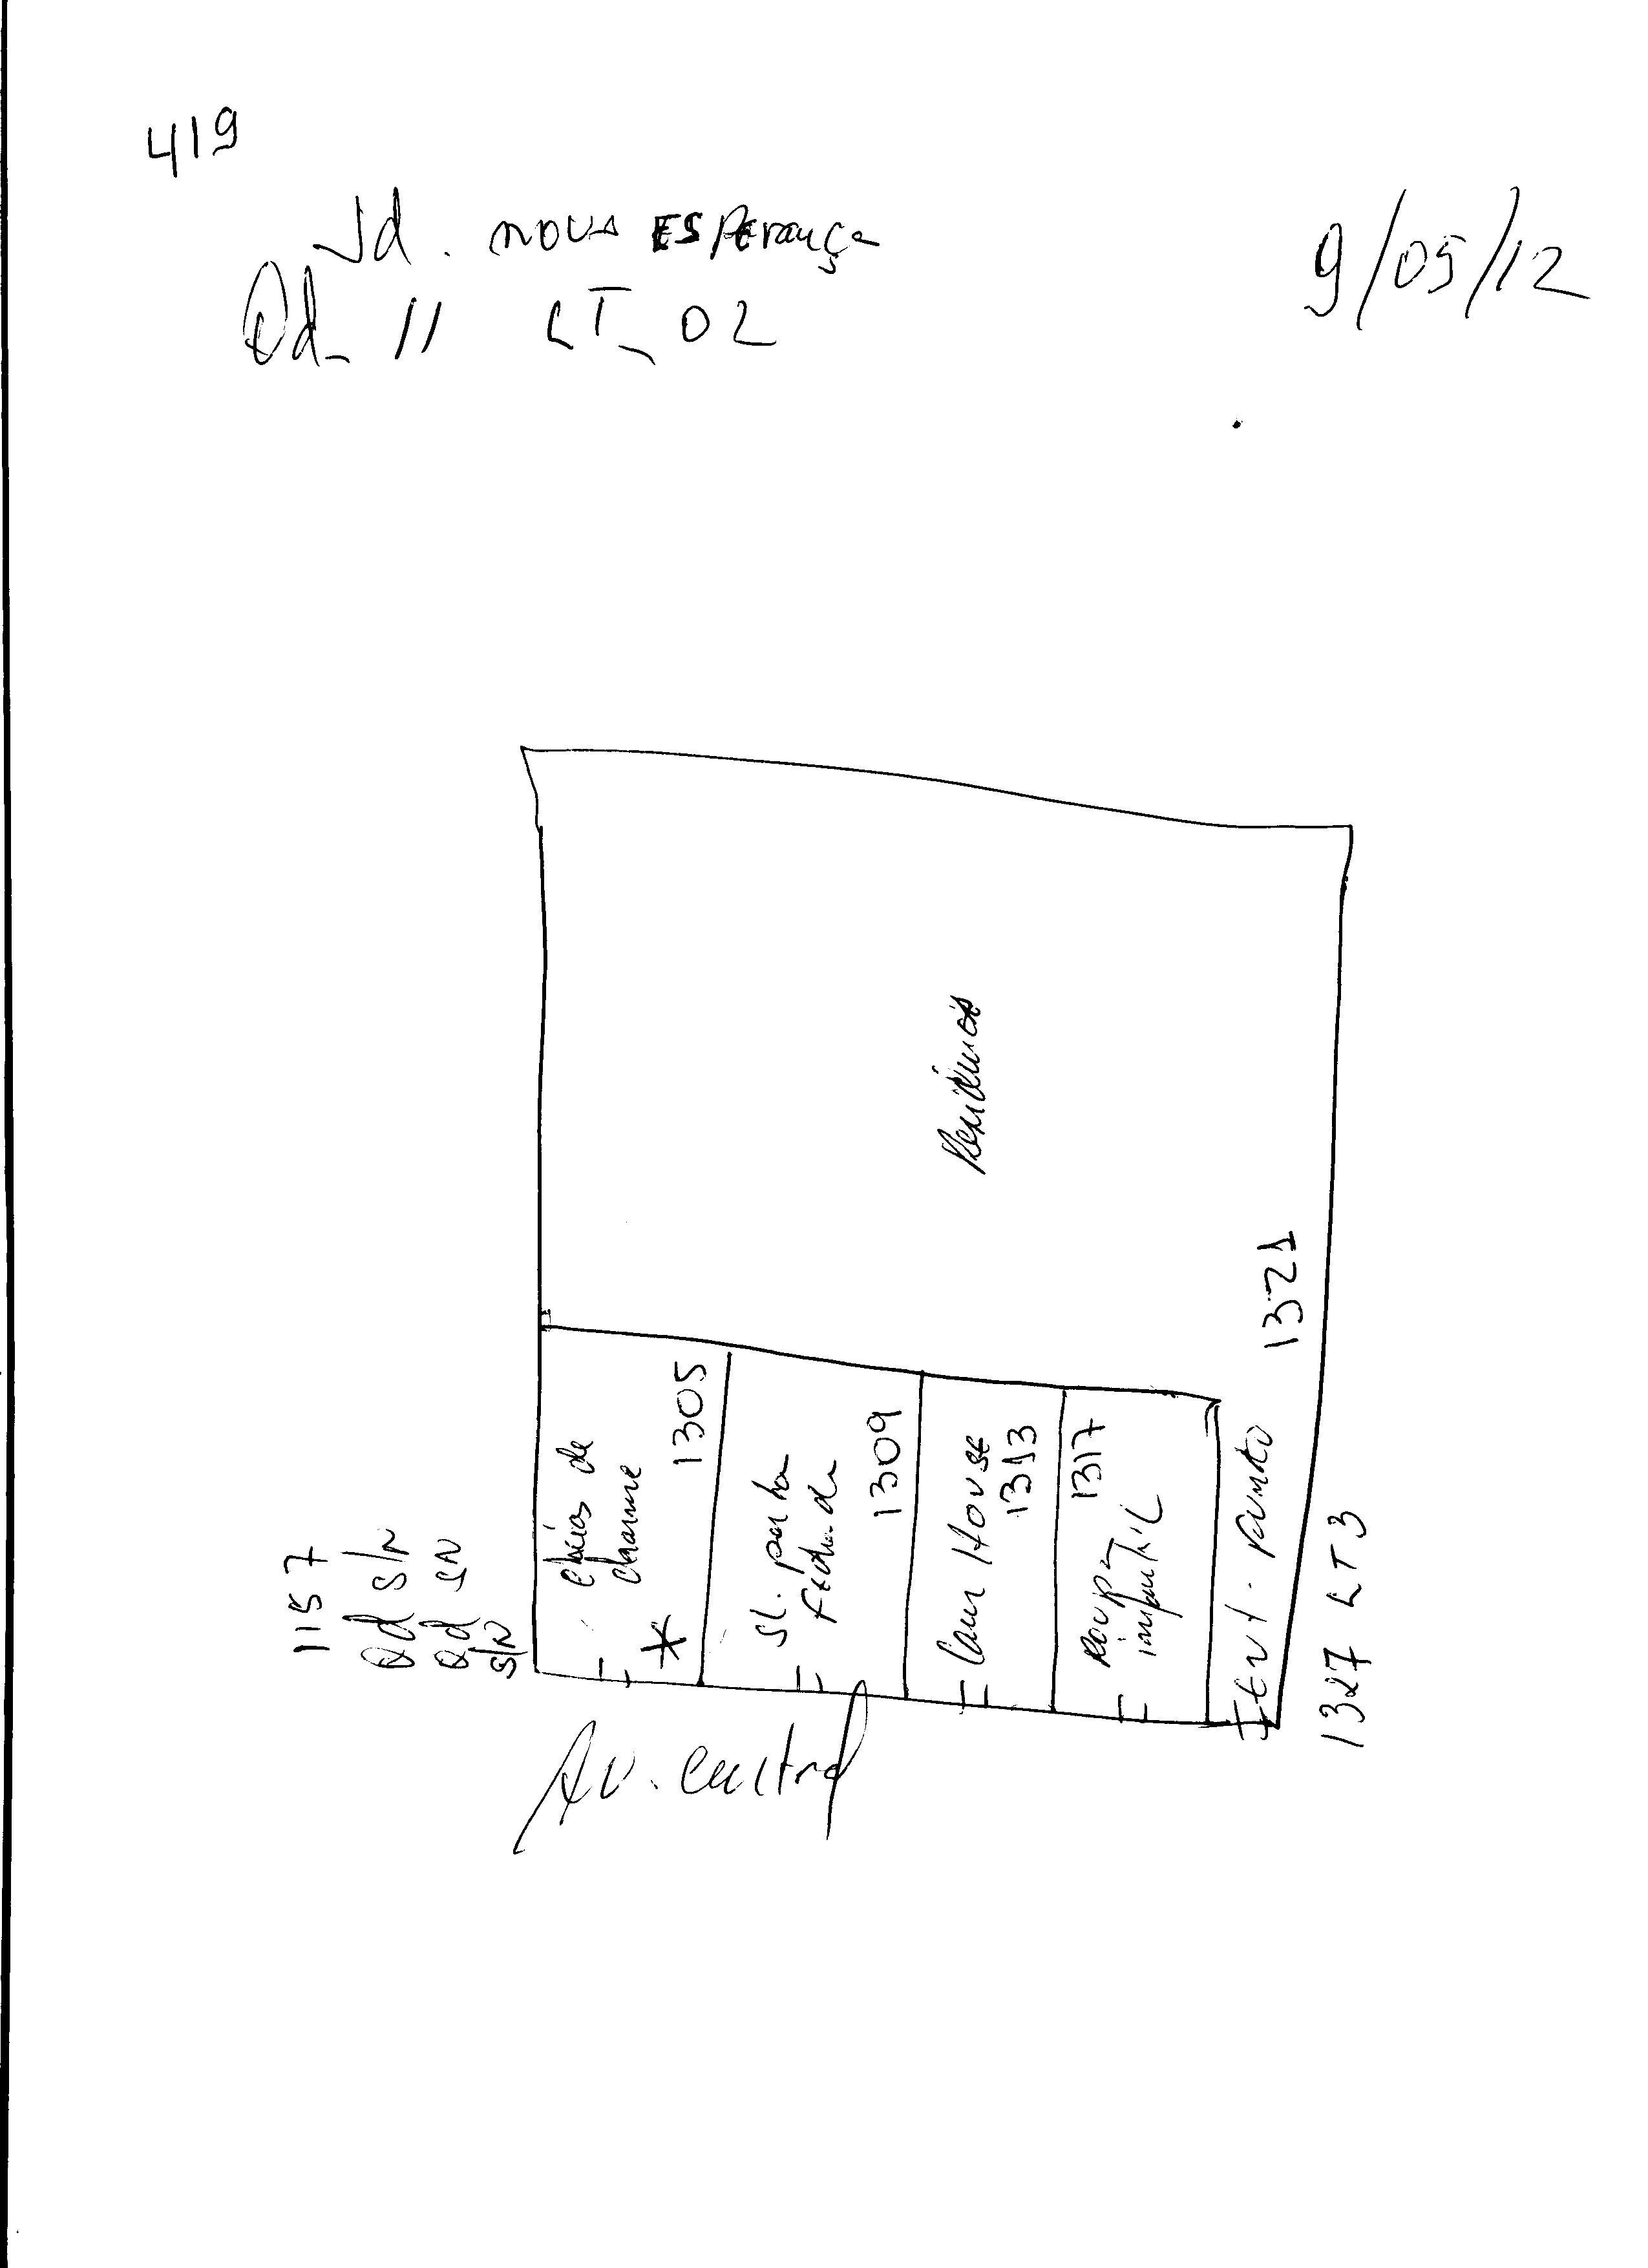 419
Jd. NOVA ESPErança
Qd_ 11 LT_ 02
9/05/12
Residência
1321
1305
cheias de
charme
*
1309
SL. porta
Fechada
Cam House
1313
1317
Roupa
infantil
Ent.
1157
Qd S/N
Qd SN
S/N
1327 LT 3
Av. Central